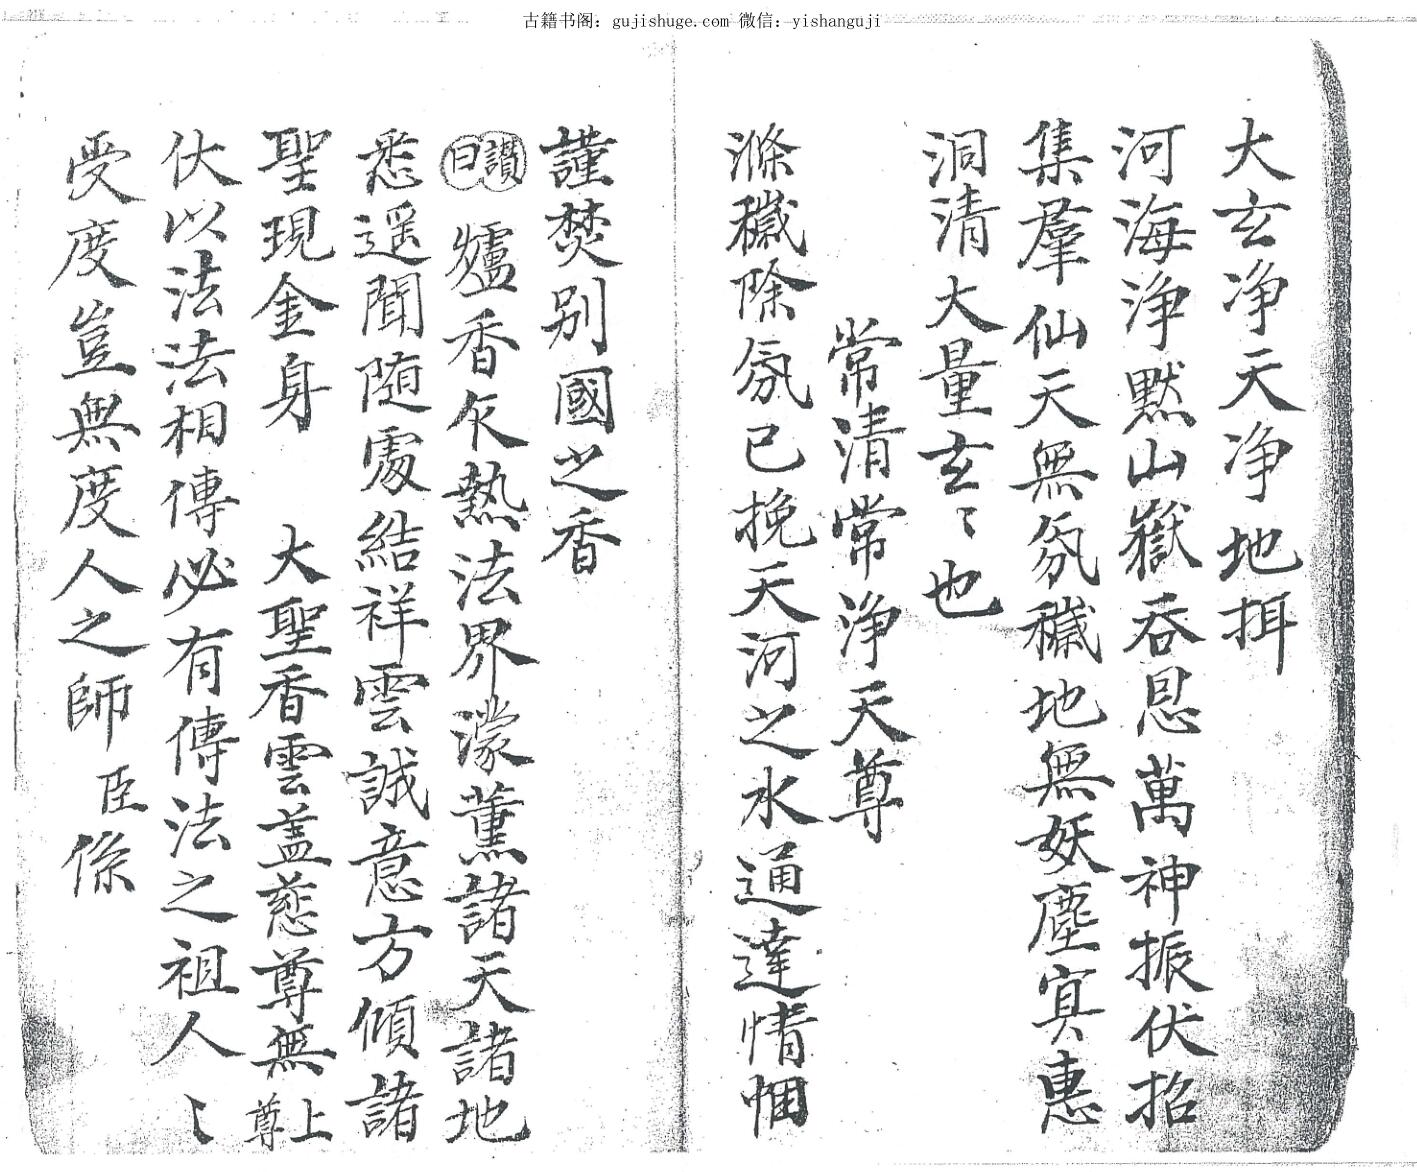 古籍书阁：gujishuge.com 微信：yishanguji
大玄净天天净地揖
河海净默山嶽吞恩萬神振伏招
集羣仙天無氛穢地無妖塵冥惠
洞清大量玄〻也
常清常净天尊
滌穢除氛已挽天河之水通達情悃
謹焚别國之香
讃曰爐香乍熱法界濛薰諸天諸地
悉遥聞随處結祥雲誠意方傾諸
聖現金身　大聖香雲盖慈尊無上尊
伏以法法相傳必有傳法之祖人〻
受度豈無度人之師臣係